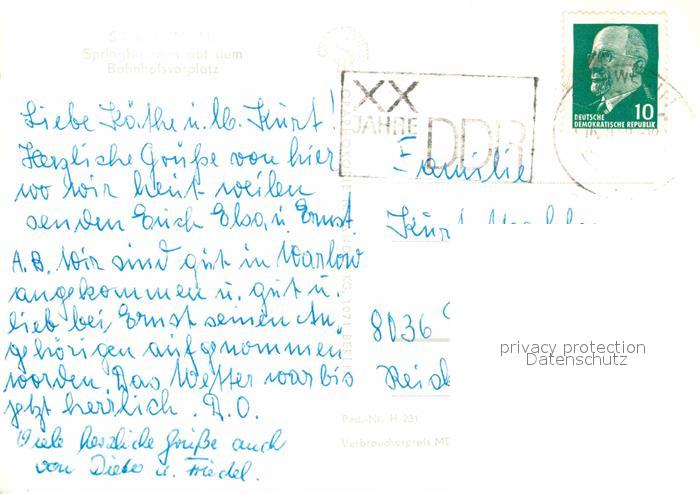 Springbrunnen auf dem
Bahnhofsvorplatz
Liebe Käthe u. lb. Kurt!
Herzliche Grüße von hier
wo wir heut weilen
senden Euch Elsa u. Ernst.
A.B. Wir sind gut in Warlow
angekommen u. gut u.
lieb bei Ernst seinen An„
gehörigen aufgenommen
worden. Das Wetter war bis
jetzt herrlich. D.O.
Viele herzliche Grüße auch
von Dieter u. Friedel.
XX
JAHRE
DDR
DEUTSCHE
DEMOKRATISCHE REPUBLIK
10
Familie
Kurt
8036
Best.-Nr. H 231
Verbraucherpreis MD
privacy protection
Datenschutz